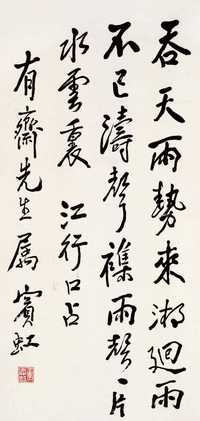 吞天雨勢來迴雨
不已濤聲襍雨聲一片
水雲裏 江行口占
有齋先生屬 賓虹